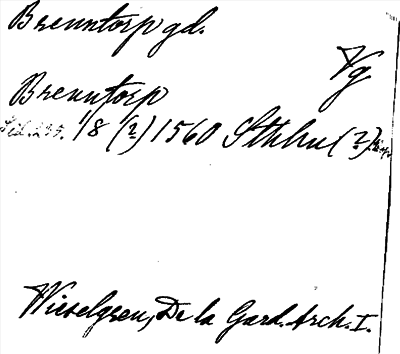 Brenntorp gd.
Vg
Brenntorp
1/8 (?) 1560 Sthlm (?)
Wieselgren, De la Gard. Arch. I.